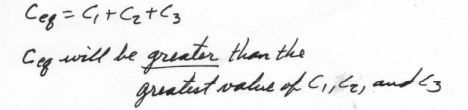 Ceq = C₁ + C₂ + C₃
Ceq will be greater than the
greatest value of C₁, C₂, and C₃